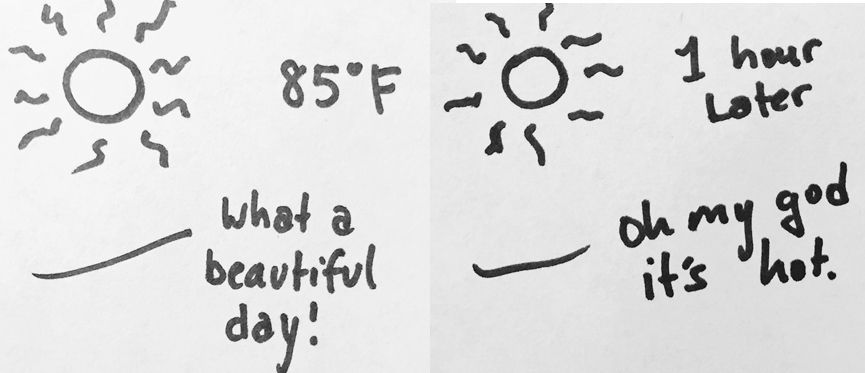 85°F
What a
beautiful
day!
1 hour
Later
Oh my god
it's hot.